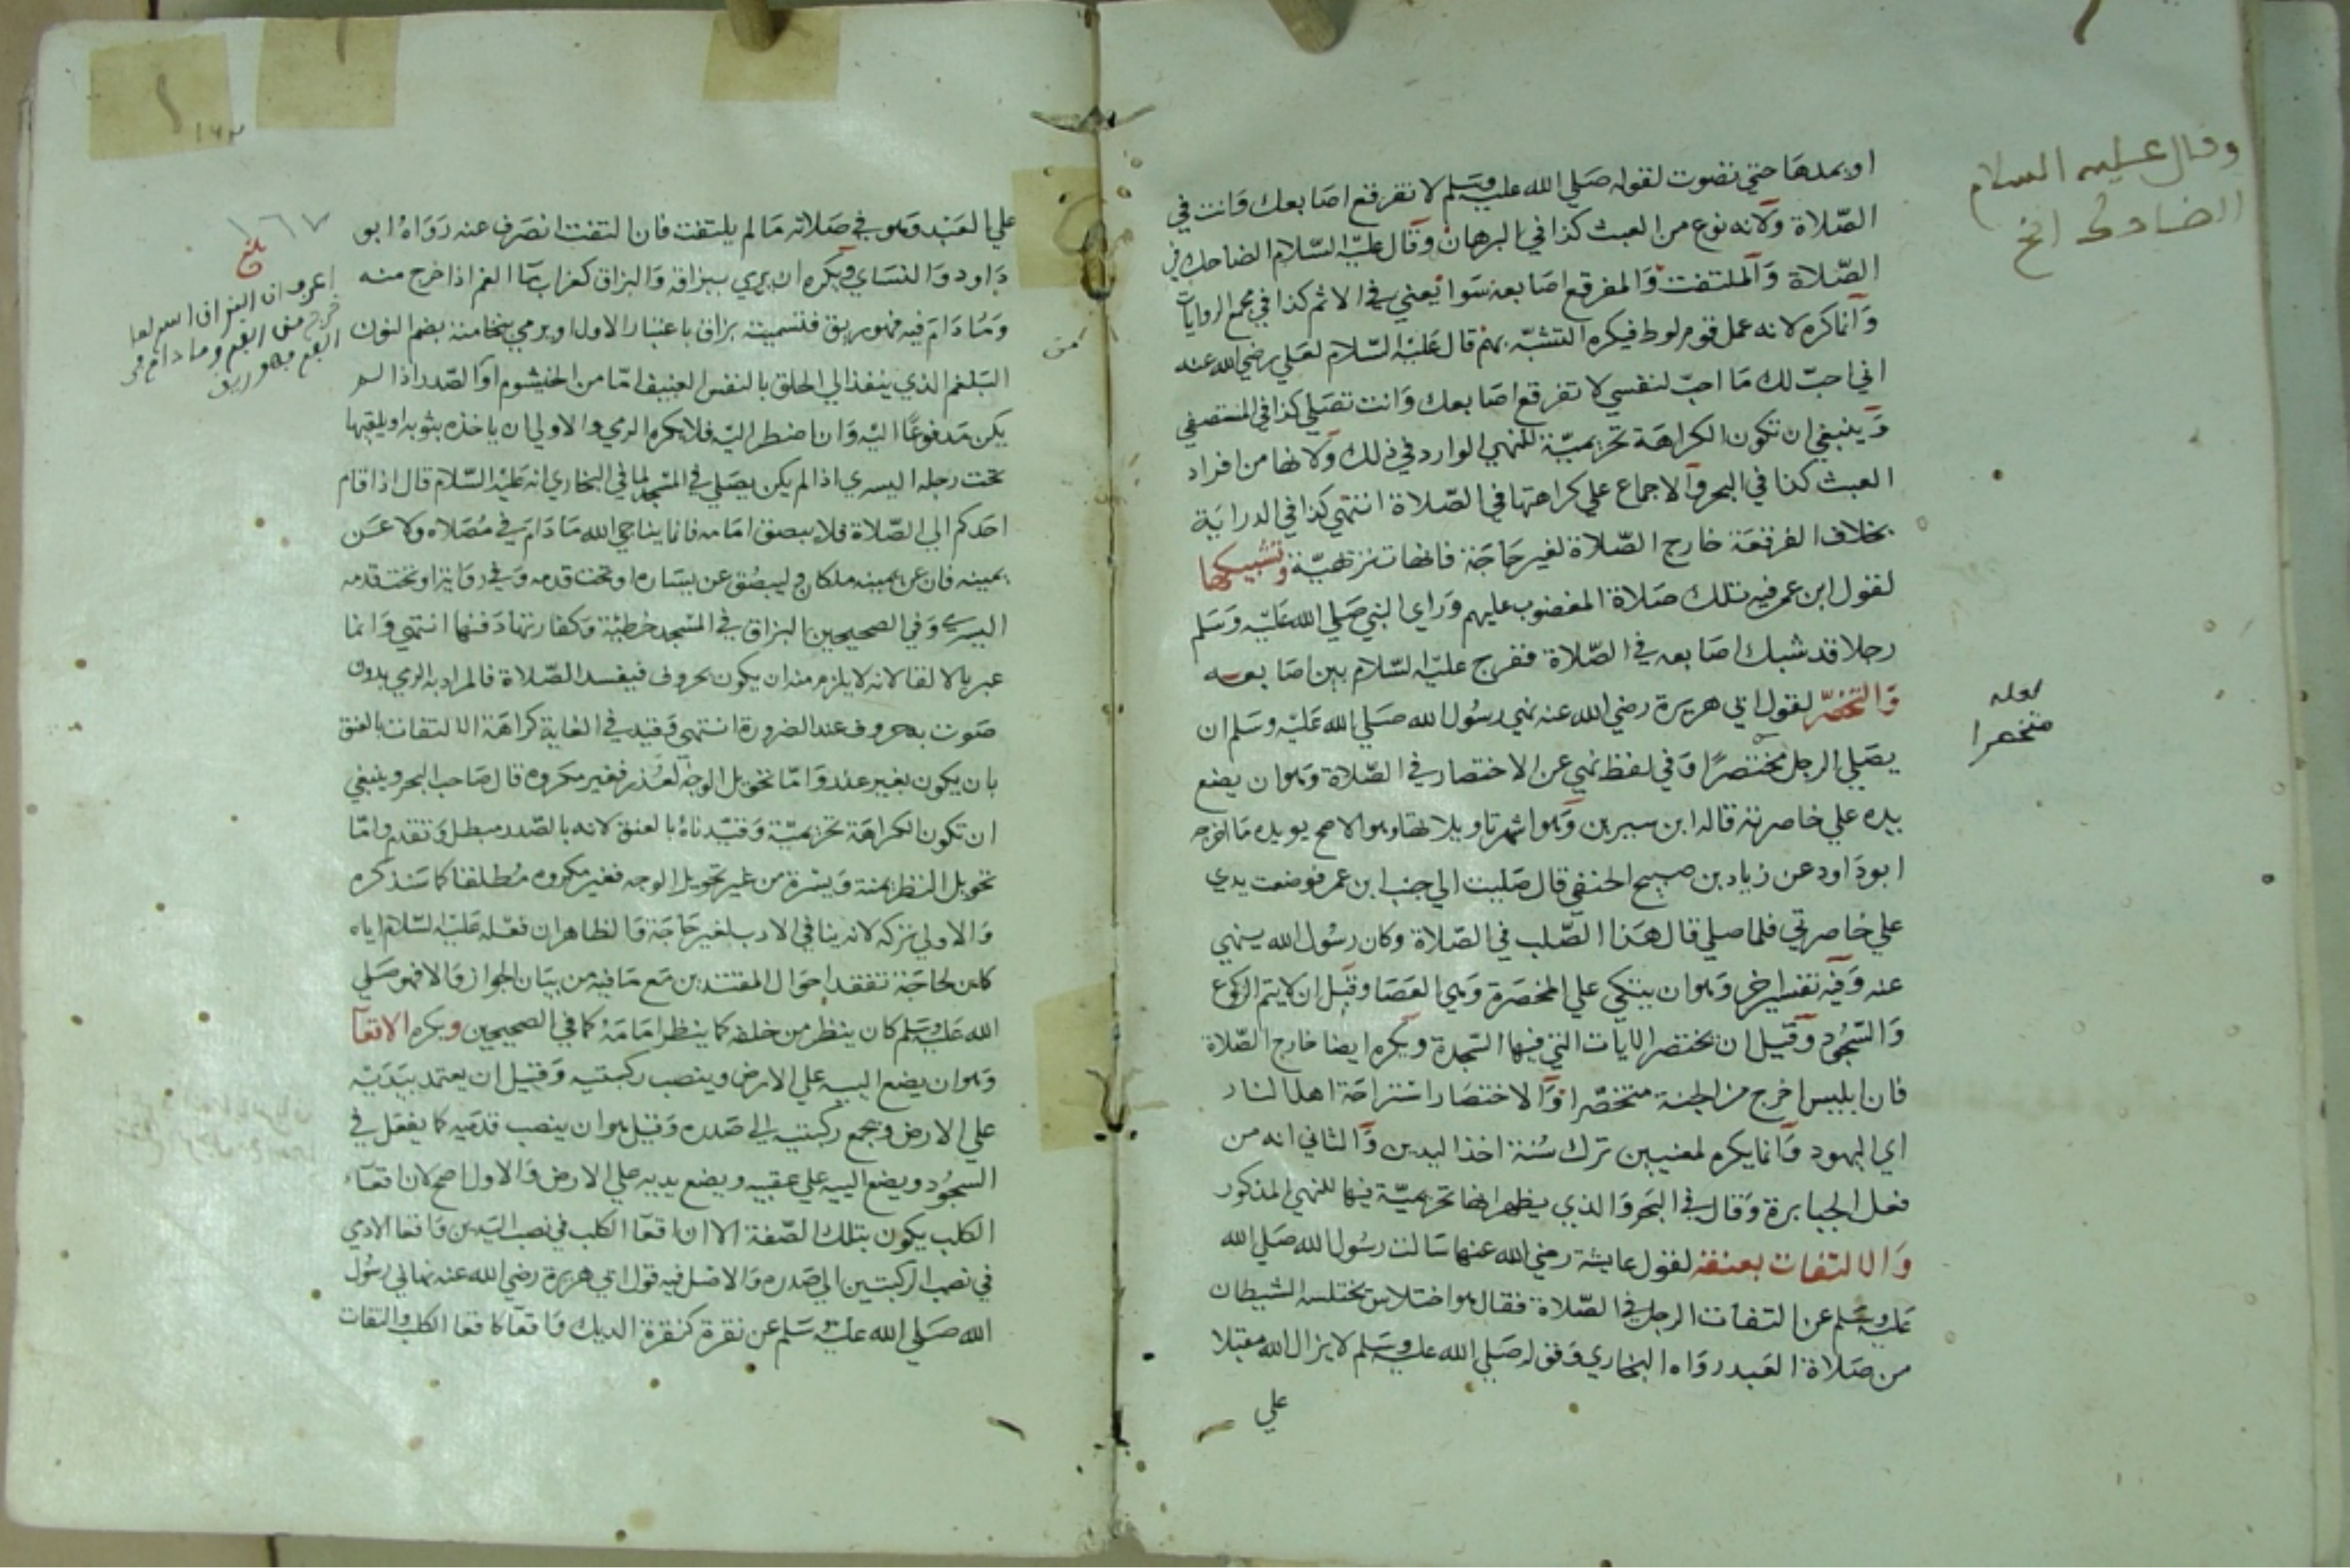 او يمدها حتي تصوت لقوله صلي الله عليه وسلم لا تفرقع اصابعك وانت في
الصلاة ولانه نوع من العبث كذا في البرهان وقال عليه السلام الضاحك في
الصلاة والملتفت والمفرقع اصابعه سوا يعني في الاثم كذا في مجمع الروايات
وانما كره لانه عمل قوم لوط فيكره التشبه بهم قال عليه السلام لعلي رضي الله عنه
اني احب لك ما احب لنفسي لا تفرقع اصابعك وانت تصلي كذا في المستصفي
وينبغي ان تكون الكراهة تحريمية للنهي الوارد في ذلك ولانها من افراد
العبث كذا في البحر والاجماع علي كراهتها في الصلاة انتهي كذا في الدراية
بخلاف الفرقعة خارج الصلاة لغير حاجة فانها تنزيهية وتشبيكها
لقول ابن عمر فيه تلك صلاة المغضوب عليهم وراي النبي صلي الله عليه وسلم
رجلا قد شبك اصابعه في الصلاة ففرج عليه السلام بين اصابعه
والتخصر لقول ابي هريرة رضي الله عنه نهي رسول الله صلي الله عليه وسلم ان
يصلي الرجل مختصرا وفي لفظ نهي عن الاختصار في الصلاة وهو ان يضع
يده علي خاصرته قاله ابن سيرين وهو اشهر تاويلاتها وهو الاصح يويده ما اخرجه
ابو داود عن زياد بن صبيح الحنفي قال صليت الي جنب ابن عمر فوضعت يدي
علي خاصرتي فلما صلي قال هذا الصلب في الصلاة وكان رسول الله ينهي
عنه وفيه تفسير اخر وهو ان يتكي علي المخصرة وهي العصا وقيل ان لا يتم الركوع
والسجود وقيل ان يختصر الايات التي فيها السجدة ويكره ايضا خارج الصلاة
فان ابليس اخرج من الجنة متخصرا والاختصار استراحة اهل النار
اي اليهود وانما يكره لمعنيين ترك سنة اخذ اليدين والثاني انه من
فعل الجبابرة وقال في البحر والذي يظهر انها تحريمية فيها للنهي المذكور
والالتفات بعنقه لقول عايشة رضي الله عنها سالت رسول الله صلي الله
عليه وسلم عن التفات الرجل في الصلاة فقال هو اختلاس يختلسه الشيطان
من صلاة العبد رواه البخاري وقوله صلي الله عليه وسلم لا يزال الله مقبلا
علي
وقال عليه السلام
الضاحك الخ
لعله
متخصرا
علي العبد وهو في صلاته ما لم يلتفت فان التفت انصرف عنه رواه ابو
داود والنسايي ويكره ان يرمي ببزاقه والبزاق كغراب ماا الفم اذا خرج منه
وما دام فيه فهو ريق فتسميته بزاق باعتبار الاول او يرمي بنخامته بضم النون
البلغم الذي ينفذ الي الحلق بالنفس العنيف اما من الخيشوم او الصدر اذا لم
يكن مدفوعا اليه وان اضطر اليه فلا يكره الرمي والاولي ان ياخذه بثوبه او يلقيها
تحت رجله اليسري اذا لم يكن يصلي في المسجد لما في البخاري انه عليه السلام قال اذا قام
احدكم الي الصلاة فلا يبصق امامه فانما يناجي الله ما دام في مصلاه ولا عن
يمينه فان عن يمينه ملكا وليبصق عن يساره او تحت قدمه وفي رواية او تحت قدمه
اليسري وفي الصحيحين البزاق في المسجد خطية وكفارتها دفنها انتهي وانما
عبر بالالقا لانه لا يلزم منه ان يكون بحروف فيفسد الصلاة فالمراد به الرمي بدون
صوت بحروف عند الضرورة انتهي وقيد في الغاية كراهة الالتفات بالعنق
بان يكون بغير عذر واما تحويل الوجه لعذر فغير مكروه قال صاحب البحر وينبغي
ان تكون الكراهة تحريمية وقيدناه بالعنق لانه بالصدر مبطل وتقدم واما
تحويل النظر يمنة ويسرة من غير تحويل الوجه فغير مكروه مطلقا كما سنذكره
والاولي تركه لانه ينافي الادب لغير حاجة فالظاهر ان فعله عليه السلام اياه
كان لحاجة تفقد احوال المقتدين مع ما فيه من بيان الجواز والا فهو صلي
الله عليه وسلم كان ينظر من خلفه كما ينظر امامه كما في الصحيحين ويكره الاقعآ
وهو ان يضع الييه علي الارض وينصب ركبتيه وقيل ان يعتمد بيديه
علي الارض ويجمع ركبتيه الي صدره وقيل هو ان ينصب قدميه كما يفعل في
السجود ويضع اليه علي عقبيه ويضع يديه علي الارض والاول اصح لان اقعآء
الكلب يكون بتلك الصفة الا ان اقعآ الكلب في نصب اليدين واقعا الادمي
في نصب الركبتين الي صدره والاصل فيه قول ابي هريرة رضي الله عنه نهاني رسول
الله صلي الله عليه وسلم عن نقرة كنقرة الديك واقعآ كاقعا الكلب والتفات
١٦٧
بلغ
اعرف ان البزاق اسم لما
خرج من الفم وما دام في
الفم فهو ريق
من